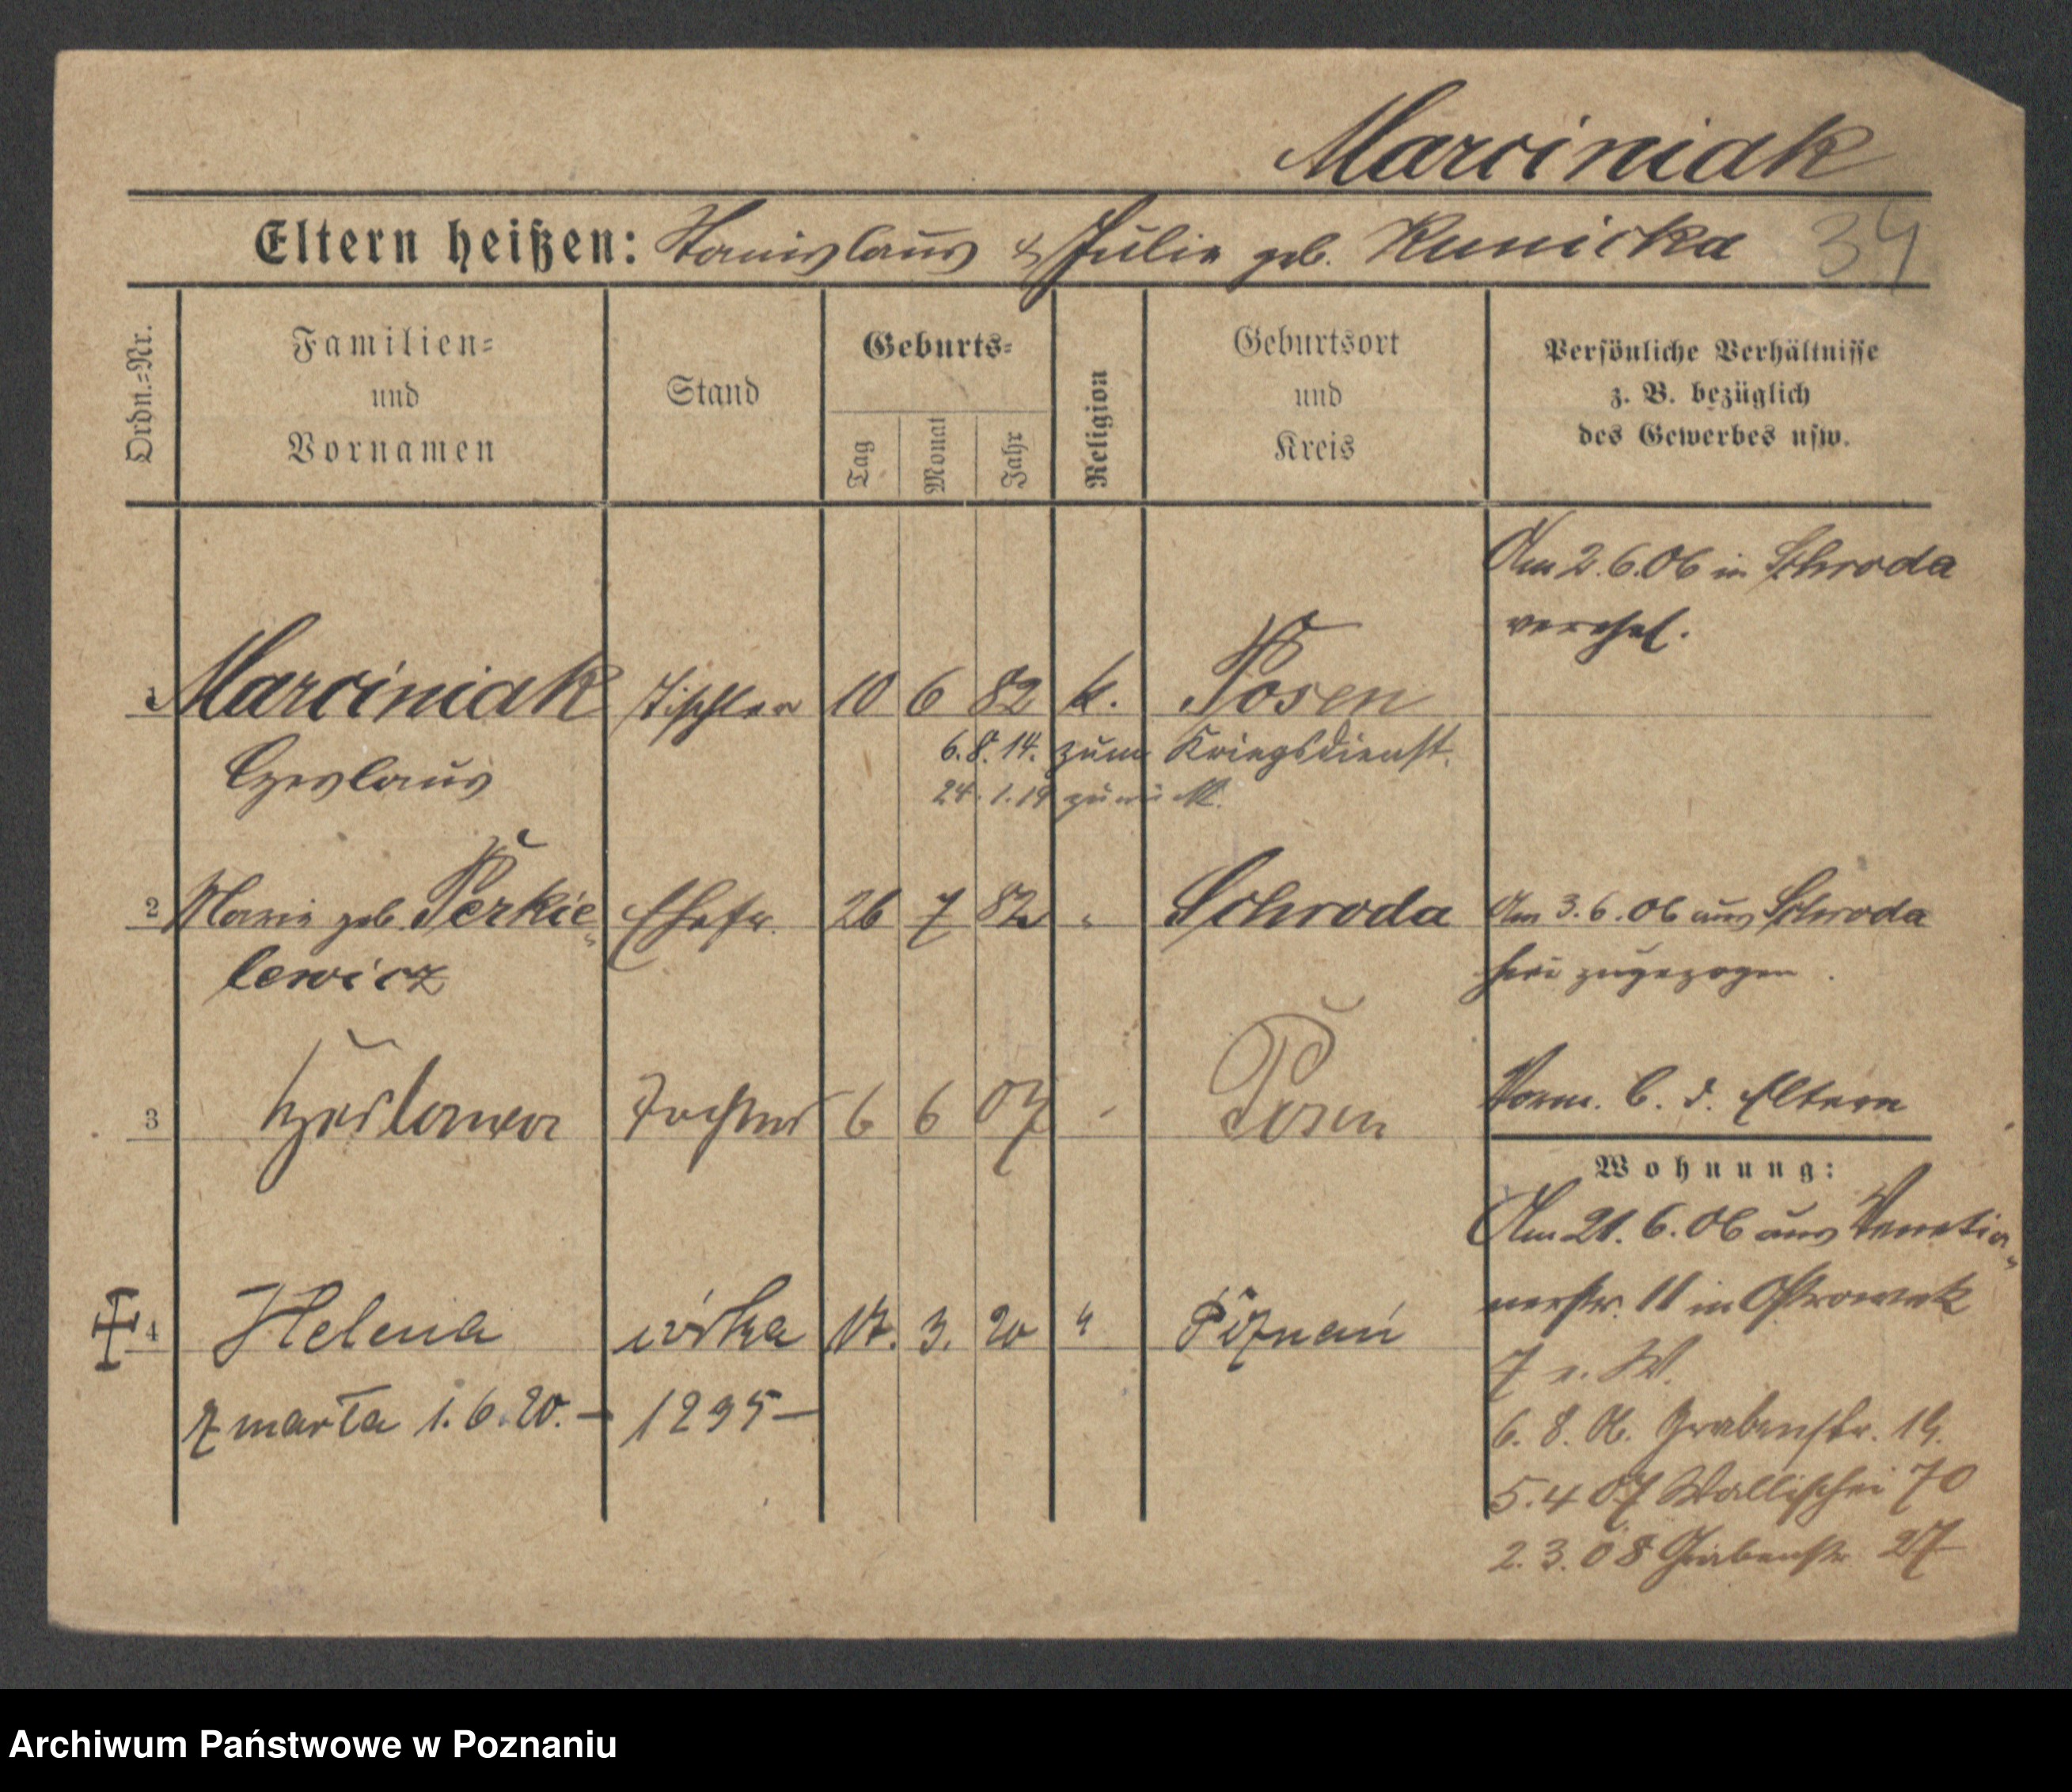 Marciniak
Eltern heißen: Stanislaus & Julie geb. Kunicka 34
Ordn.-Nr.
Familien-
und
Vornamen
Stand
Geburts-
Tag
Monat
Jahr
Religion
Geburtsort
und
Kreis
Persönliche Verhältnisse
z. B. bezüglich
des Gewerbes usw.
Am 2.6.06 in Schroda
verehel.
1 Marciniak Tischler 10 6 82 k. Posen
6.8.14. zum Kriegsdienst.
Czeslaus
24.1.19
2 Marie geb. Perkie- Ehefr. 26 7 82 " Schroda Am 3.6.06 aus Schroda
lewicz
hier zugezogen.
3 Czeslawa Tochter 6 6 07 Posen
Vorm. b. d. Eltern
Wohnung:
Am 21.6.06 aus Venetia-
nerstr. 11 in Ostrowek
7 n. W.
4 Helena córka 17. 3. 20 " Poznań
zmarła 1.6.20. – 1295 –
6. 8. 06. Grabenstr. 19.
5.4 07 Wallischei 70
2.3.08 Grabenstr 27
Archiwum Państwowe w Poznaniu